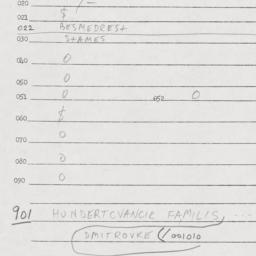 020
021 $
022 BESMEDREST
030 STAMES
040 0
050 0
051 0 050 0
060 $
070 0
080 0
090 0
901 HUNDERTCVANCIE FAMILIS, ...
DMITROVKE 001010